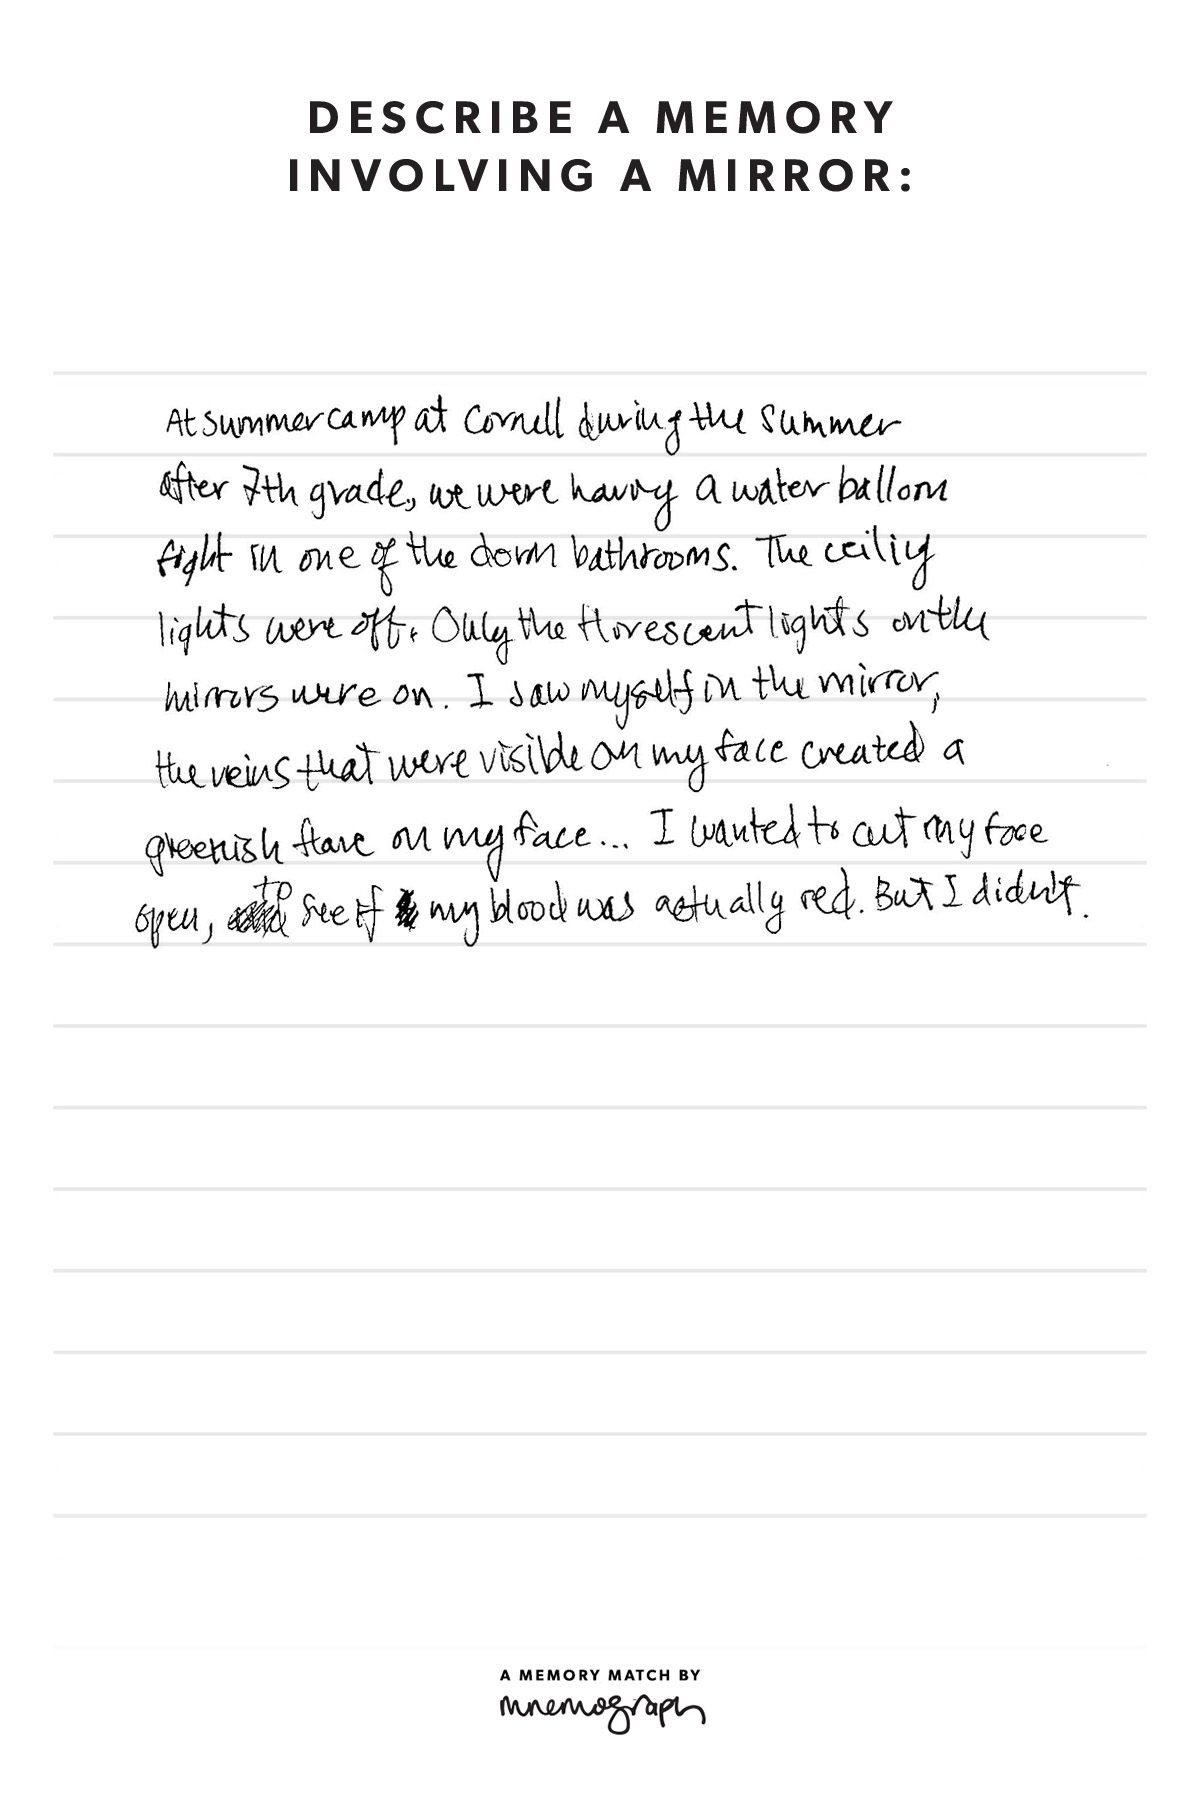 DESCRIBE A MEMORY
INVOLVING A MIRROR:
At summer camp at Cornell during the summer
after 7th grade, we were having a water balloon
fight in one of the dorm bathrooms. The ceiling
lights were off. Only the florescent lights on the
mirrors were on. I saw myself in the mirror,
the veins that were visible on my face created a
greenish flare on my face... I wanted to cut my face
open, to see if my blood was actually red. But I didn't.
A MEMORY MATCH BY
mnemograph